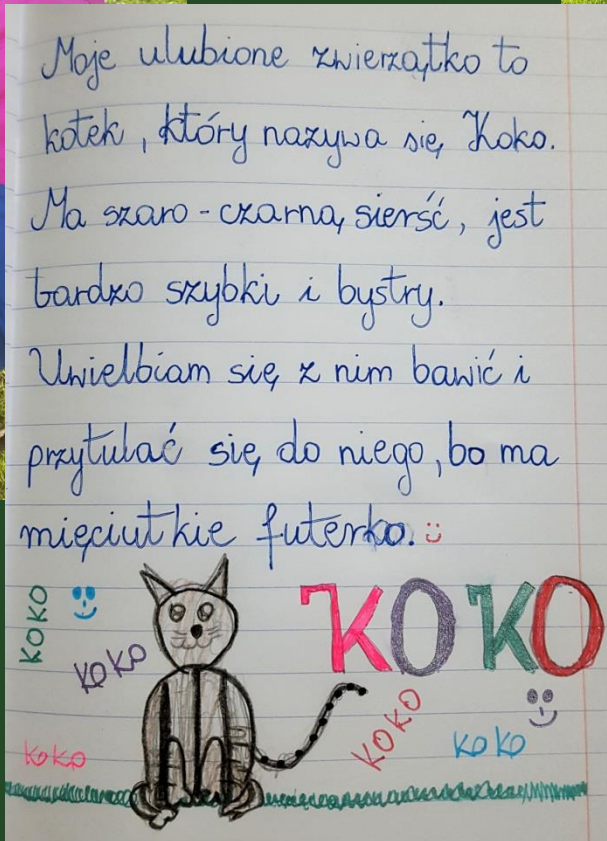 Moje ulubione zwierzątko to
kotek, który nazywa się Koko.
Ma szaro-czarną sierść, jest
bardzo szybki i bystry.
Uwielbiam się z nim bawić i
przytulać się do niego, bo ma
mięciutkie futerko. :)
KOKO
KOKO
KOKO
KOKO
KOKO
KOKO